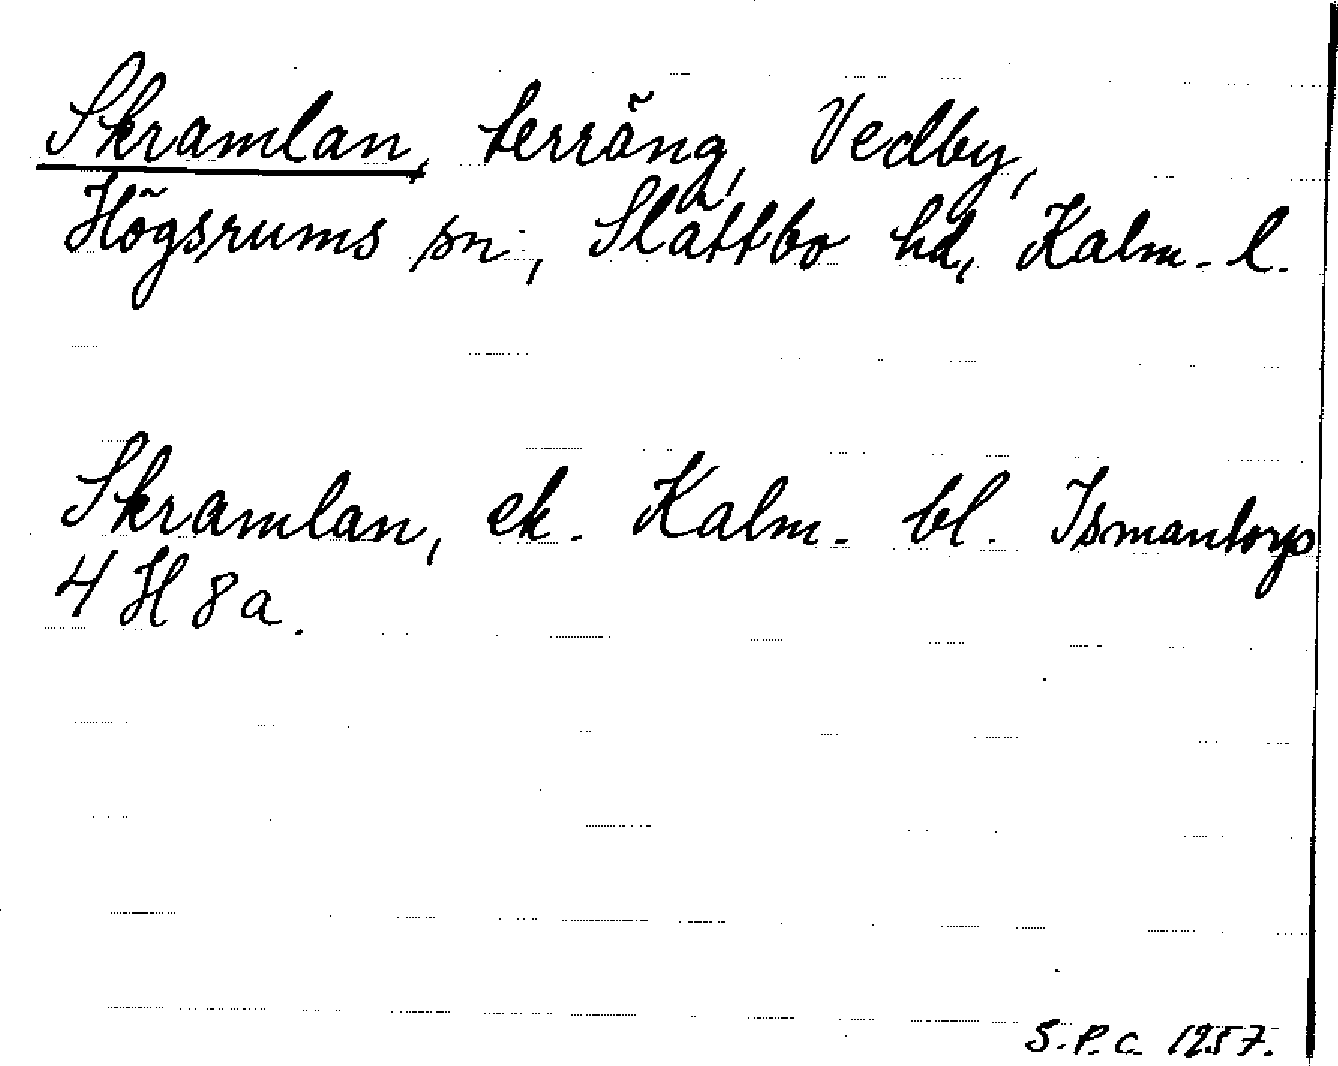 Skramlan, terräng, Vedby,
Högsrums sn., Slättbo hd, Kalm. l.
Skramlan, ek. Kalm. bl. Ismantorp
4 H 8 a.
S.P.C. 1957.